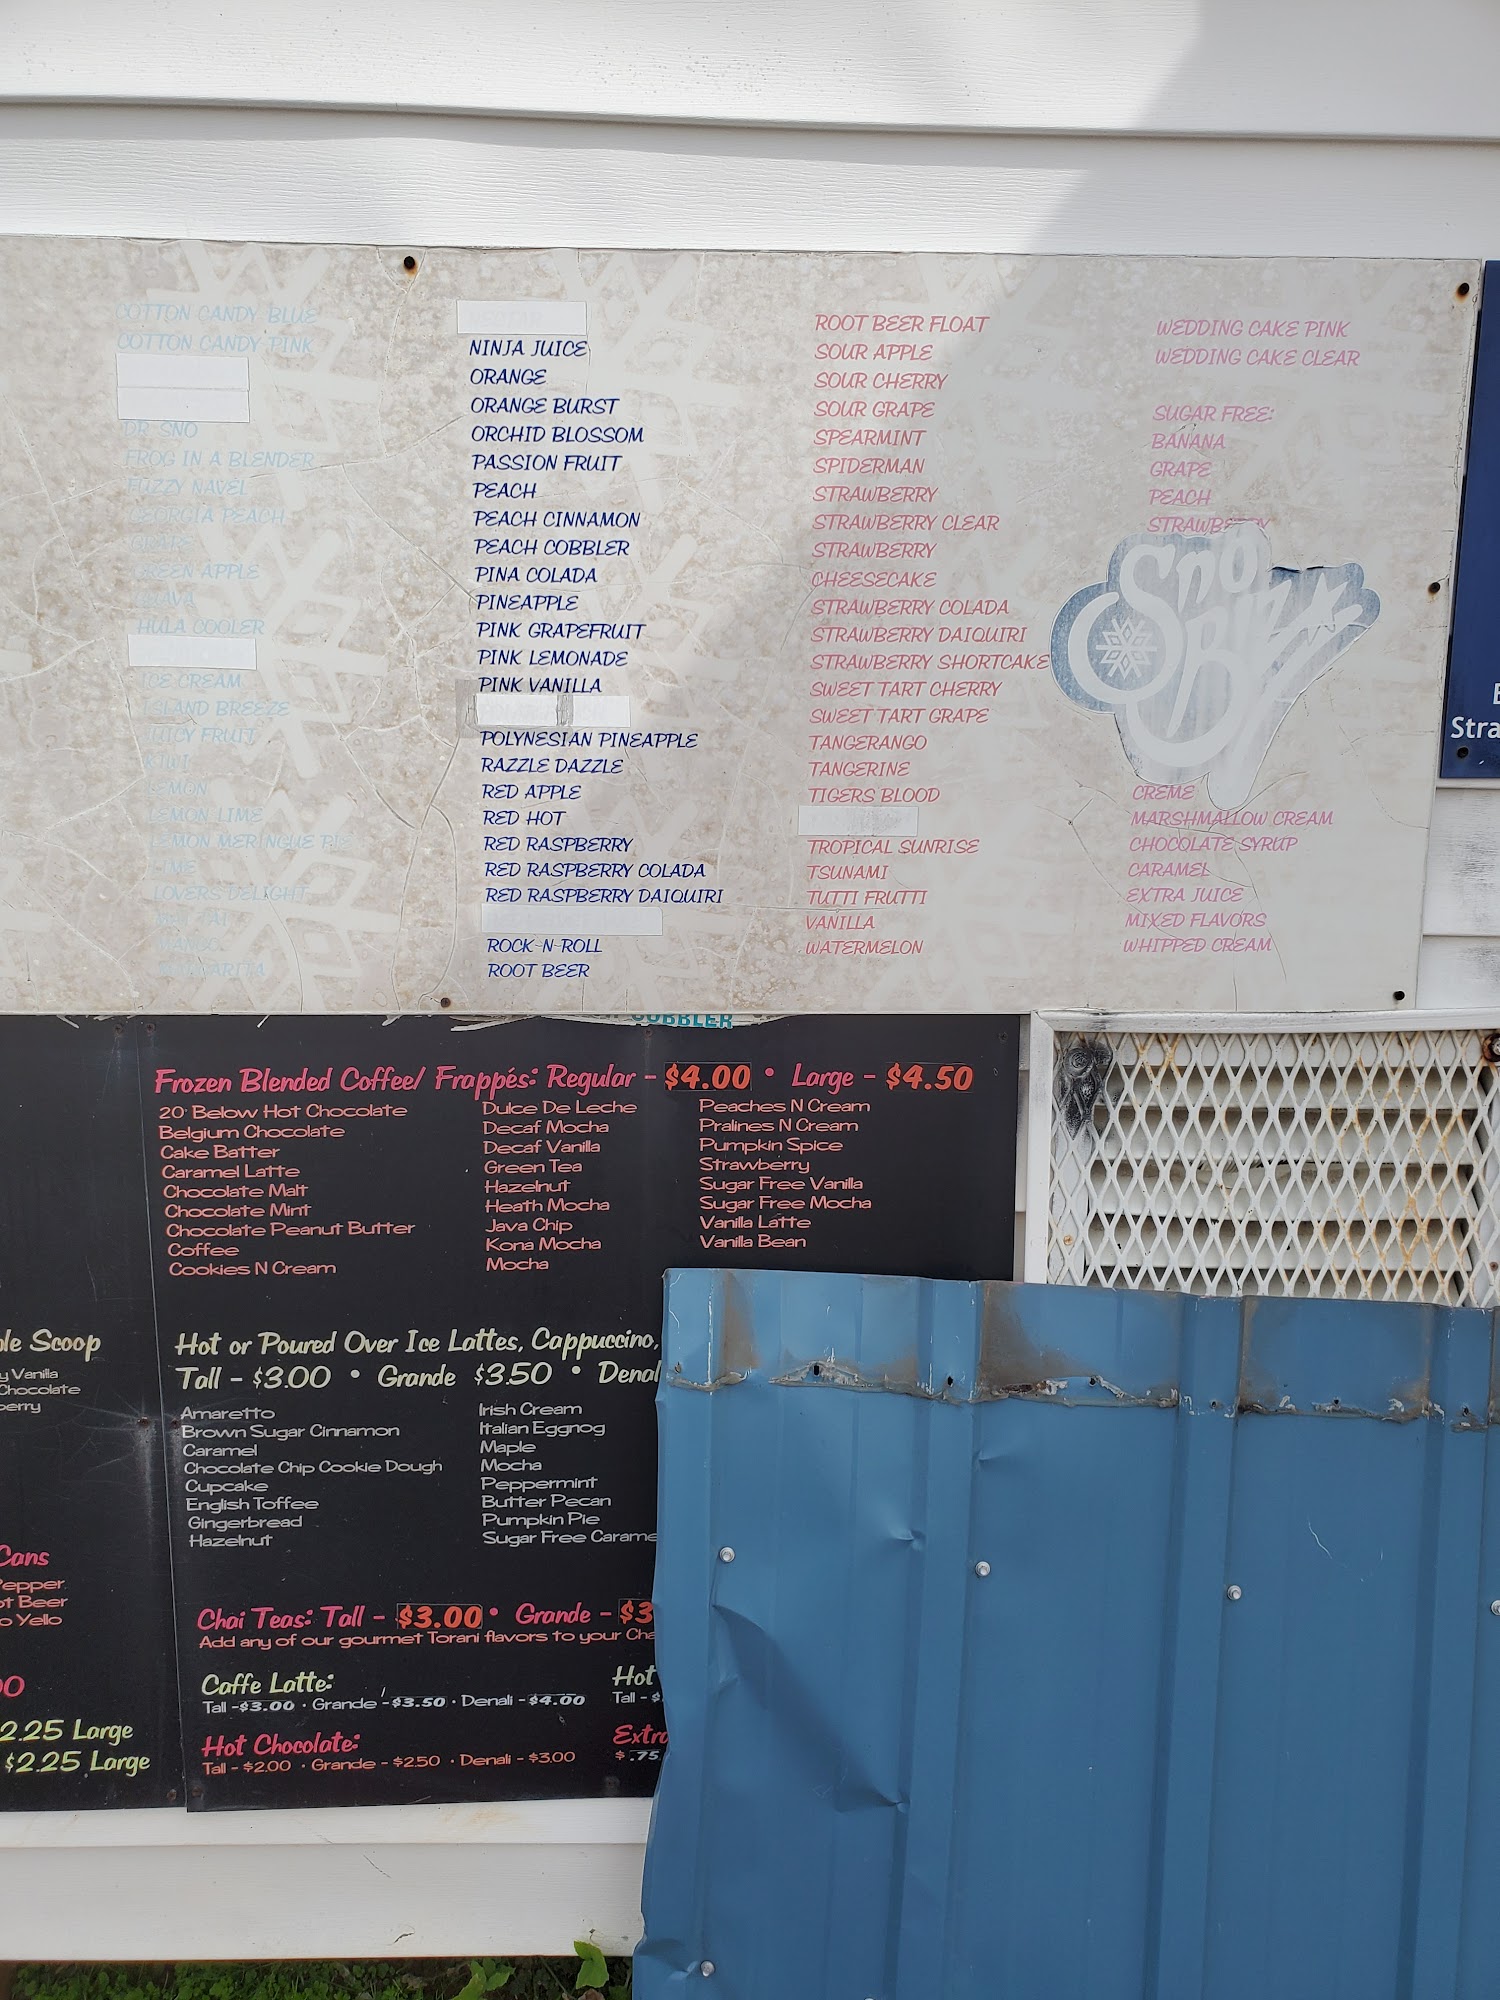 COTTON CANDY BLUE
COTTON CANDY PINK
DR. SNO
FROG IN A BLENDER
FUZZY NAVEL
GEORGIA PEACH
GRAPE
GREEN APPLE
GUAVA
HULA COOLER
ICE CREAM
ISLAND BREEZE
JUICY FRUIT
KIWI
LEMON
LEMON LIME
LEMON MERINGUE PIE
LIME
LOVERS DELIGHT
MAI TAI
MANGO
MARGARITA
NINJA JUICE
ORANGE
ORANGE BURST
ORCHID BLOSSOM
PASSION FRUIT
PEACH
PEACH CINNAMON
PEACH COBBLER
PINA COLADA
PINEAPPLE
PINK GRAPEFRUIT
PINK LEMONADE
PINK VANILLA
POLYNESIAN PINEAPPLE
RAZZLE DAZZLE
RED APPLE
RED HOT
RED RASPBERRY
RED RASPBERRY COLADA
RED RASPBERRY DAIQUIRI
ROCK-N-ROLL
ROOT BEER
ROOT BEER FLOAT
SOUR APPLE
SOUR CHERRY
SOUR GRAPE
SPEARMINT
SPIDERMAN
STRAWBERRY
STRAWBERRY CLEAR
STRAWBERRY
CHEESECAKE
STRAWBERRY COLADA
STRAWBERRY DAIQUIRI
STRAWBERRY SHORTCAKE
SWEET TART CHERRY
SWEET TART GRAPE
TANGERANGO
TANGERINE
TIGERS BLOOD
TROPICAL SUNRISE
TSUNAMI
TUTTI FRUTTI
VANILLA
WATERMELON
WEDDING CAKE PINK
WEDDING CAKE CLEAR
SUGAR FREE:
BANANA
GRAPE
PEACH
STRAWBERRY
Sno
Biz
CREME
MARSHMALLOW CREAM
CHOCOLATE SYRUP
CARAMEL
EXTRA JUICE
MIXED FLAVORS
WHIPPED CREAM
Stra
COBBLER
Frozen Blended Coffee/ Frappés: Regular - $4.00 • Large - $4.50
20° Below Hot Chocolate
Belgium Chocolate
Cake Batter
Caramel Latte
Chocolate Malt
Chocolate Mint
Chocolate Peanut Butter
Coffee
Cookies N Cream
Dulce De Leche
Decaf Mocha
Decaf Vanilla
Green Tea
Hazelnut
Heath Mocha
Java Chip
Kona Mocha
Mocha
Peaches N Cream
Pralines N Cream
Pumpkin Spice
Strawberry
Sugar Free Vanilla
Sugar Free Mocha
Vanilla Latte
Vanilla Bean
Hot or Poured Over Ice Lattes, Cappuccino,
Tall - $3.00 • Grande $3.50 • Denal
Amaretto
Brown Sugar Cinnamon
Caramel
Chocolate Chip Cookie Dough
Cupcake
English Toffee
Gingerbread
Hazelnut
Irish Cream
Italian Eggnog
Maple
Mocha
Peppermint
Butter Pecan
Pumpkin Pie
Sugar Free Carame
Chai Teas: Tall - $3.00 • Grande - $3
Add any of our gourmet Torani flavors to your Cha
Caffe Latte:
Tall - $3.00 · Grande - $3.50 · Denali - $4.00
Hot Chocolate:
Tall - $2.00 · Grande - $2.50 · Denali - $3.00
Hot
Tall - $
Extra
$.75
le Scoop
y Vanilla
Chocolate
berry
Cans
Pepper
ot Beer
o Yello
00
2.25 Large
$2.25 Large